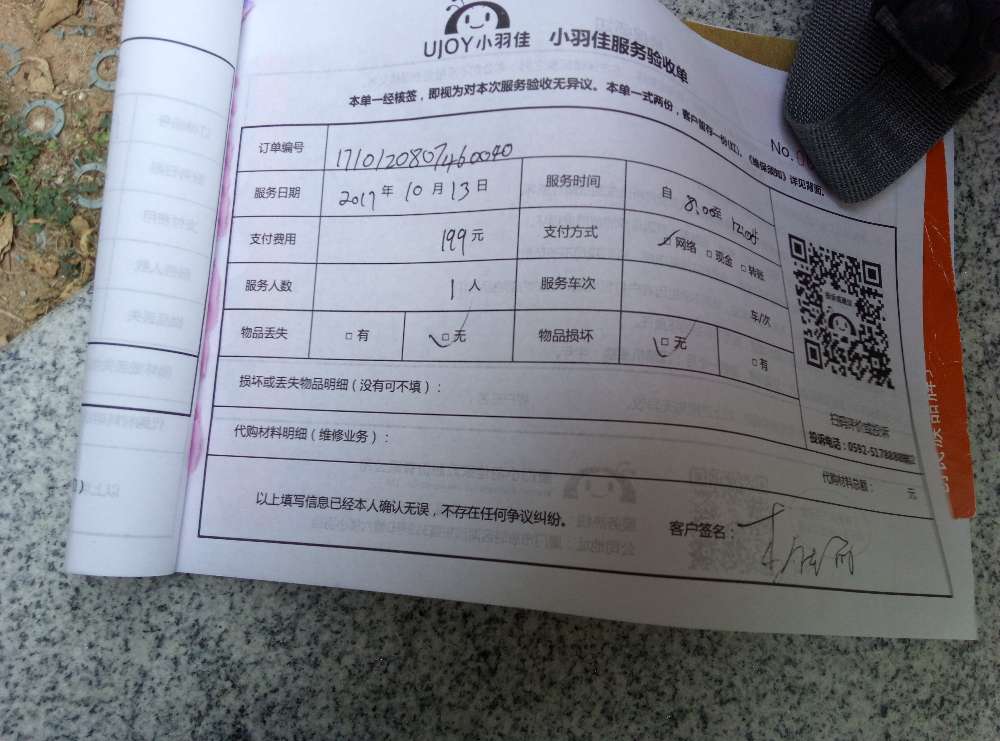 UJOY小羽佳 小羽佳服务验收单
本单一经核签，即视为对本次服务验收无异议。本单一式两份，客户留存一份(红)，《维保须知》详见背面。
No.
订单编号 1710120807460040
服务日期 2017年10月13日 服务时间 自 8:00至 12:00时
支付费用 199元 支付方式 ☑网络 □现金 □转账
服务人数 1人 服务车次 车/次
物品丢失 □有 ☑无 物品损坏 ☑无 □有
损坏或丢失物品明细（没有可不填）：
扫码评价或投诉
投诉电话：0592-5178888
代购材料明细（维修业务）：
代购材料总额： 元
以上填写信息已经本人确认无误，不存在任何争议纠纷。
客户签名：